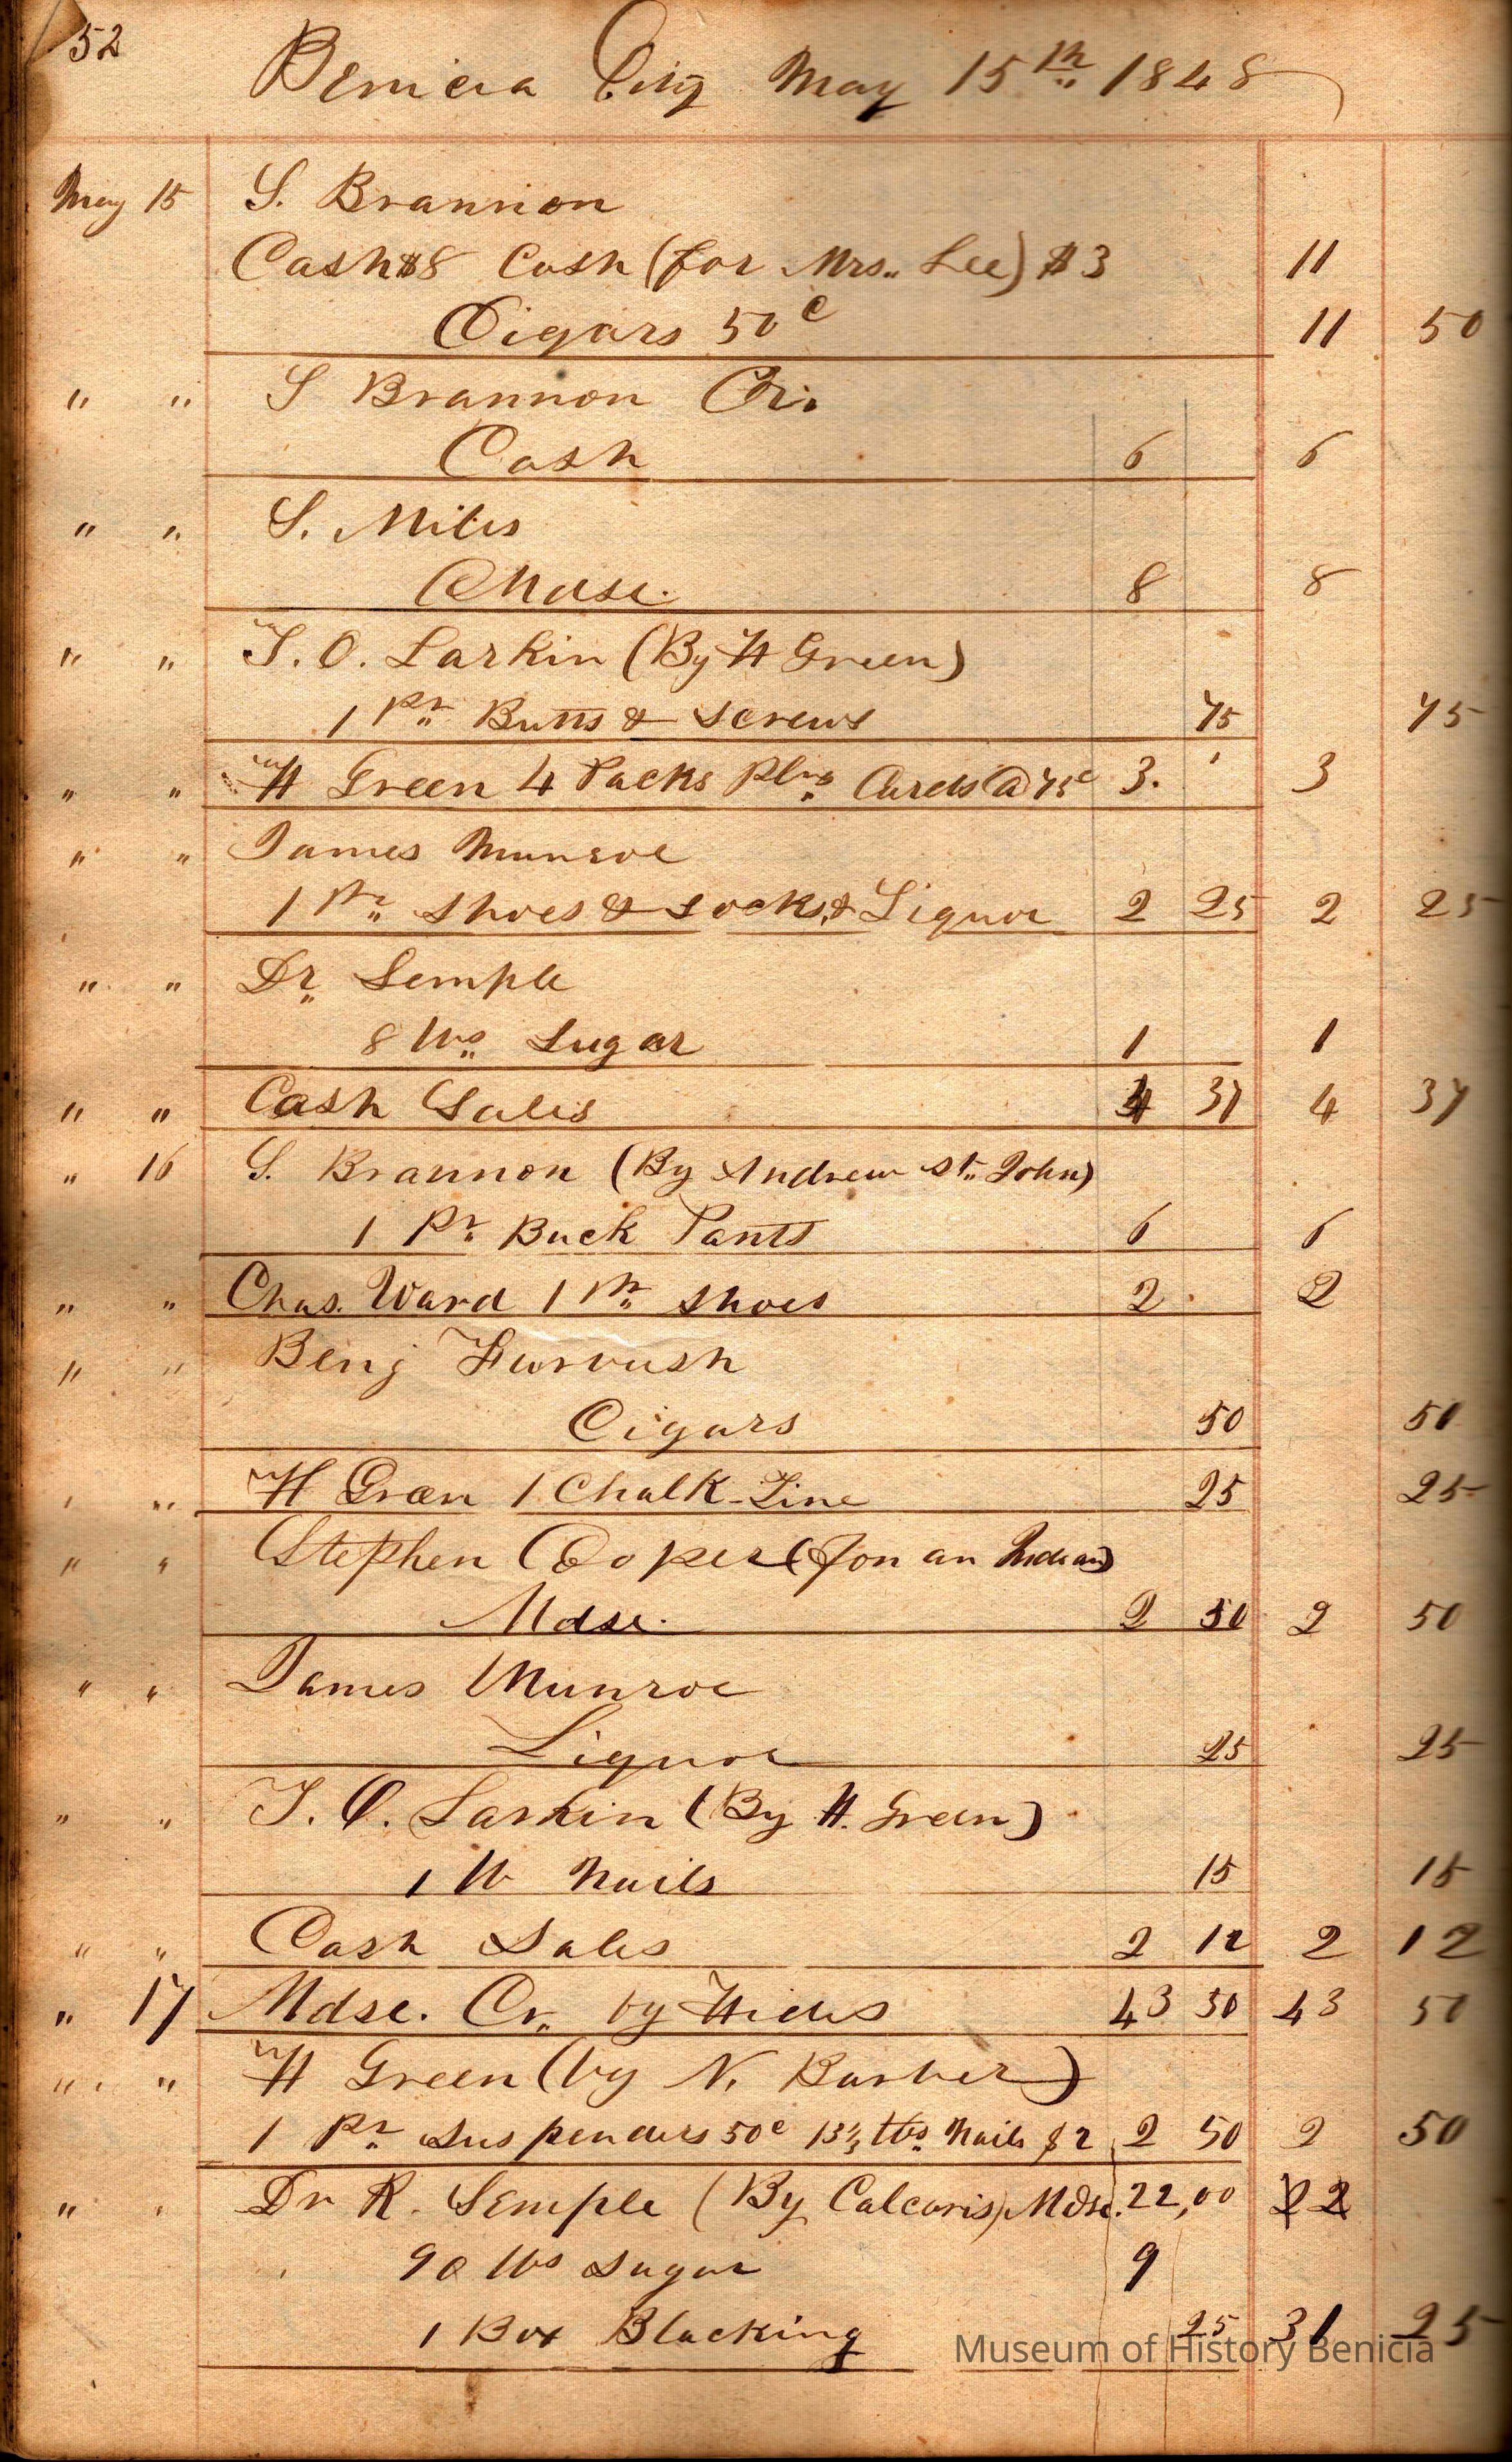 52
Benicia City May 15th 1848
May 15 S. Brannon
Cash $8 Cash (for Mrs. Lee) $3 11
Cigars 50c 11 50
" " S Brannon Cr.
Cash 6 6
" " S. Miles
Mdse. 8 8
" " T. O. Larkin (By H Green)
1 Pr. Butts & Screws 75 75
" " H Green 4 Packs Plng Cards @ 75c 3. 3
" " James Munroe
1 Pr. Shoes & Socks, & Liquor 2 25 2 25
" " Dr. Semple
8 lbs. Sugar 1 1
" " Cash Sales 4 37 4 37
" 16 S. Brannon (By Andrew St. John)
1 Pr. Buck Pants 6 6
" " Chas. Ward 1 Pr. Shoes 2 2
" " Benj Furvush
Cigars 50 50
" " H Green 1 Chalk-Line 25 25
" " Stephen Cooper (for an Indian)
Mdse. 2 50 2 50
" " James Munroe
Liquor 25 25
" " T. O. Larkin (By H. Green)
1 lb Nails 15 15
" " Cash Sales 2 12 2 12
" 17 Mdse. Cr. by Hides 43 50 43 50
" " H Green (by N. Barber)
1 Pr. Suspenders 50c 13⅓ lbs. Nails $2 2 50 2 50
" " Dr R. Semple (By Calcoris) Mdse. 22,00 22
90 lbs Sugar 9
1 Box Blacking 25 31 25
Museum of History Benicia